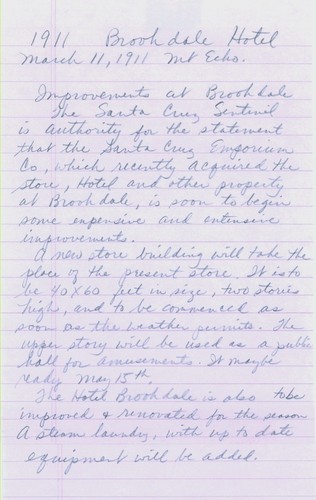 1911 Brookdale Hotel
March 11, 1911 Mt Echo.
Improvements at Brookdale
The Santa Cruz Sentinil
is authority for the statement
that the Santa Cruz Emporium
Co, which recently acquired the
store, Hotel and other property
at Brookdale, is soon to begin
some expensive and extensive
improvements.
A new store building will take the
place of the present store. It is to
be 40x60 feet in size, two stories
high, and to be commenced as
soon as the weather permits. The
upper story will be used as a public
hall for amusements. It maybe
ready May 15th.
The Hotel Brookdale is also to be
improved & renovated for the season
A steam laundry, with up to date
equipment will be added.